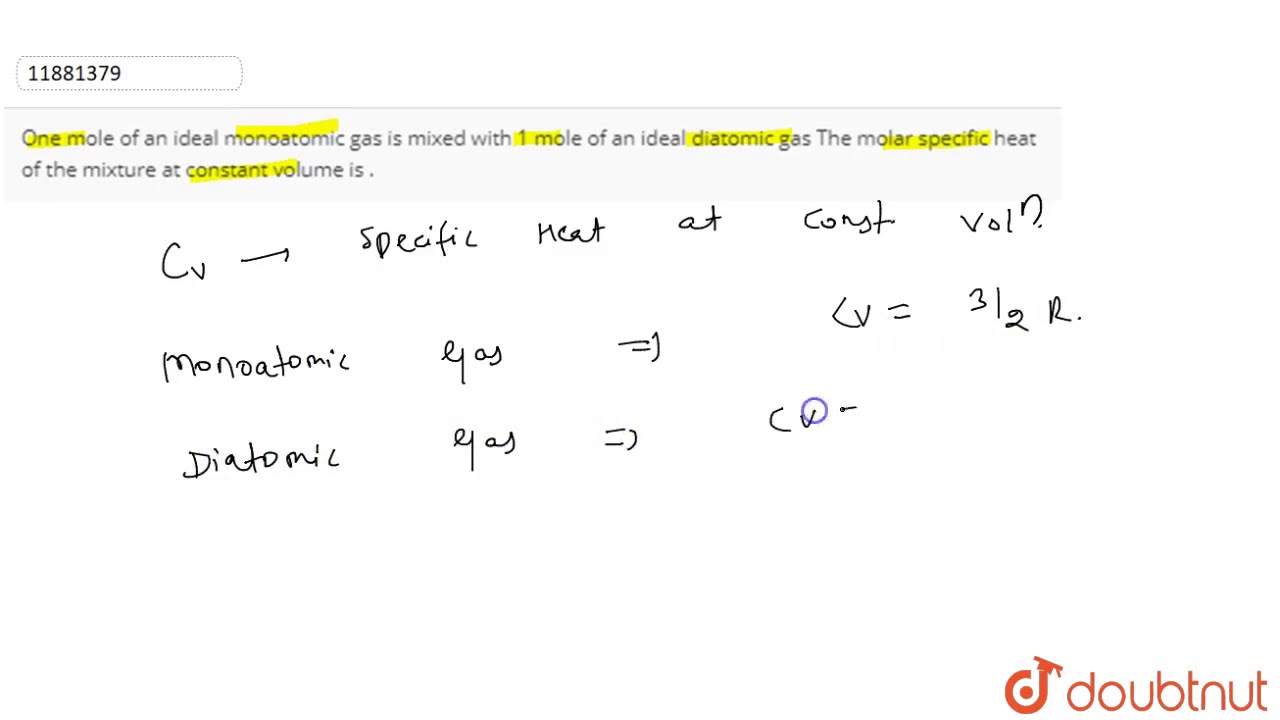 11881379
One mole of an ideal monoatomic gas is mixed with 1 mole of an ideal diatomic gas The molar specific heat
of the mixture at constant volume is .
Cv → specific Heat at const. volⁿ.
Cv = 3/2 R.
Monoatomic gas ⇒
Cv -
Diatomic gas ⇒
doubtnut